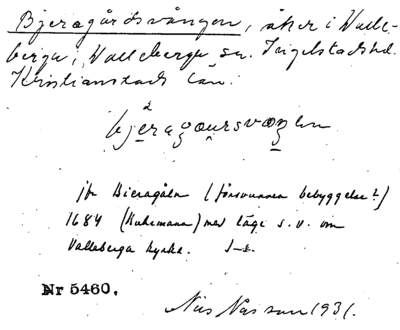 Bjeragårdsvången, åker i Valle-
berga, Valleberga sn. Ingelstads hd.
Kristianstads län.
jfr Bieragåln (försvunnen bebyggelse?)
1684 (Buhrmann) med läge s.v. om
Valleberga kyrka.
Nr 5460.
Nils Nilsson 1931.